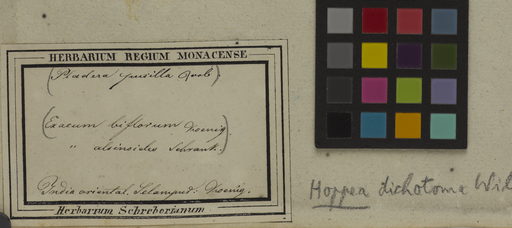 HERBARIUM REGIUM MONACENSE
(Pladera pusilla Roxb)
(Exacum biflorum Koenig
" alsinoides Schrank.)
India oriental. Koenig.
Herbarium Schreberianum
Hoppea dichotoma Wild